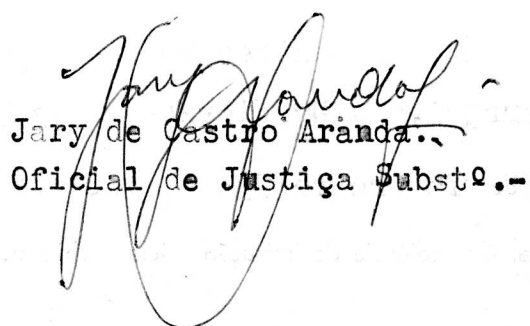 Jary de Castro Aranda..
Oficial de Justiça Substº.-